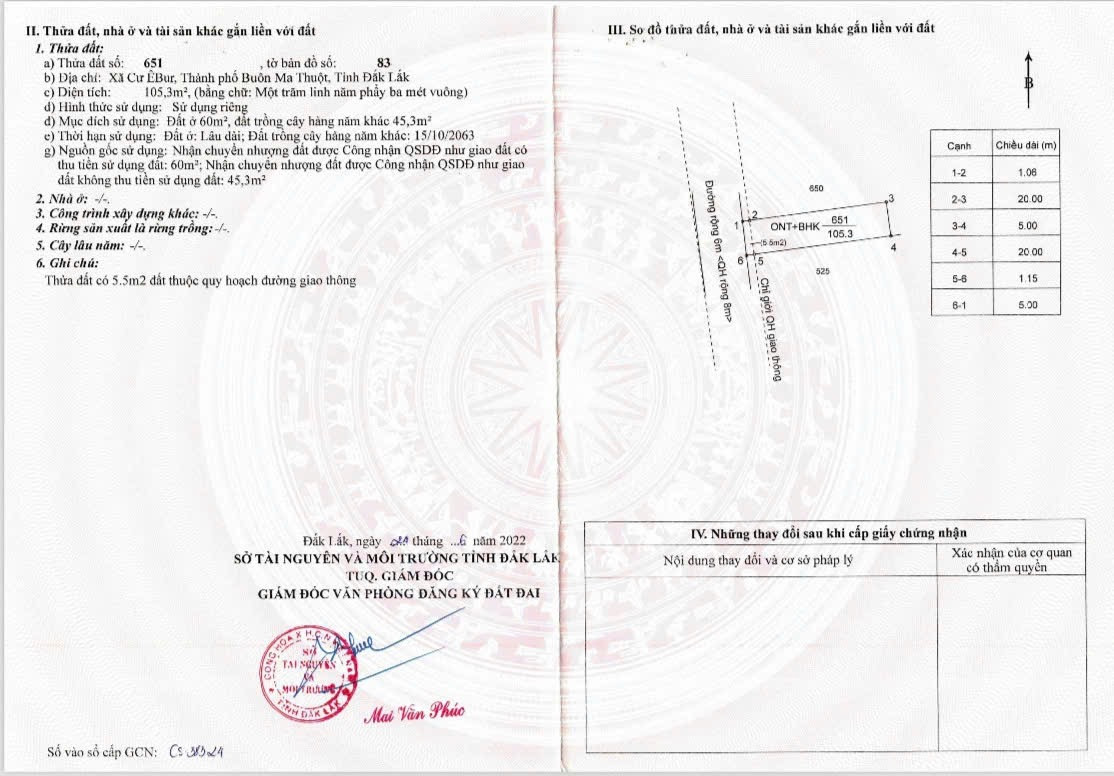 II. Thửa đất, nhà ở và tài sản khác gắn liền với đất
1. Thửa đất:
a) Thửa đất số: 651 , tờ bản đồ số: 83
b) Địa chỉ: Xã Cư ÊBur, Thành phố Buôn Ma Thuột, Tỉnh Đắk Lắk
c) Diện tích: 105,3m², (bằng chữ: Một trăm linh năm phẩy ba mét vuông)
d) Hình thức sử dụng: Sử dụng riêng
đ) Mục đích sử dụng: Đất ở 60m², đất trồng cây hàng năm khác 45,3m²
e) Thời hạn sử dụng: Đất ở: Lâu dài; Đất trồng cây hàng năm khác: 15/10/2063
g) Nguồn gốc sử dụng: Nhận chuyển nhượng đất được Công nhận QSDĐ như giao đất có
thu tiền sử dụng đất: 60m²; Nhận chuyển nhượng đất được Công nhận QSDĐ như giao
đất không thu tiền sử dụng đất: 45,3m²
2. Nhà ở: -/-.
3. Công trình xây dựng khác: -/-.
4. Rừng sản xuất là rừng trồng: -/-.
5. Cây lâu năm: -/-.
6. Ghi chú:
Thửa đất có 5.5m2 đất thuộc quy hoạch đường giao thông
Đắk Lắk, ngày tháng 6 năm 2022
SỞ TÀI NGUYÊN VÀ MÔI TRƯỜNG TỈNH ĐẮK LẮK
TUQ. GIÁM ĐỐC
GIÁM ĐỐC VĂN PHÒNG ĐĂNG KÝ ĐẤT ĐAI
SỞ
TÀI NGUYÊN
VÀ
MÔI TRƯỜNG
TỈNH ĐẮK LẮK
Mai Văn Phúc
Số vào sổ cấp GCN:
III. Sơ đồ thửa đất, nhà ở và tài sản khác gắn liền với đất
B
Đường rộng 6m <QH rộng 8m>
Chỉ giới QH giao thông
650
1
2
3
ONT+BHK 651
105.3
(5.5m2)
4
5
6
525
Cạnh Chiều dài (m)
1-2 1.06
2-3 20.00
3-4 5.00
4-5 20.00
5-6 1.15
6-1 5.00
IV. Những thay đổi sau khi cấp giấy chứng nhận
Nội dung thay đổi và cơ sở pháp lý
Xác nhận của cơ quan
có thẩm quyền